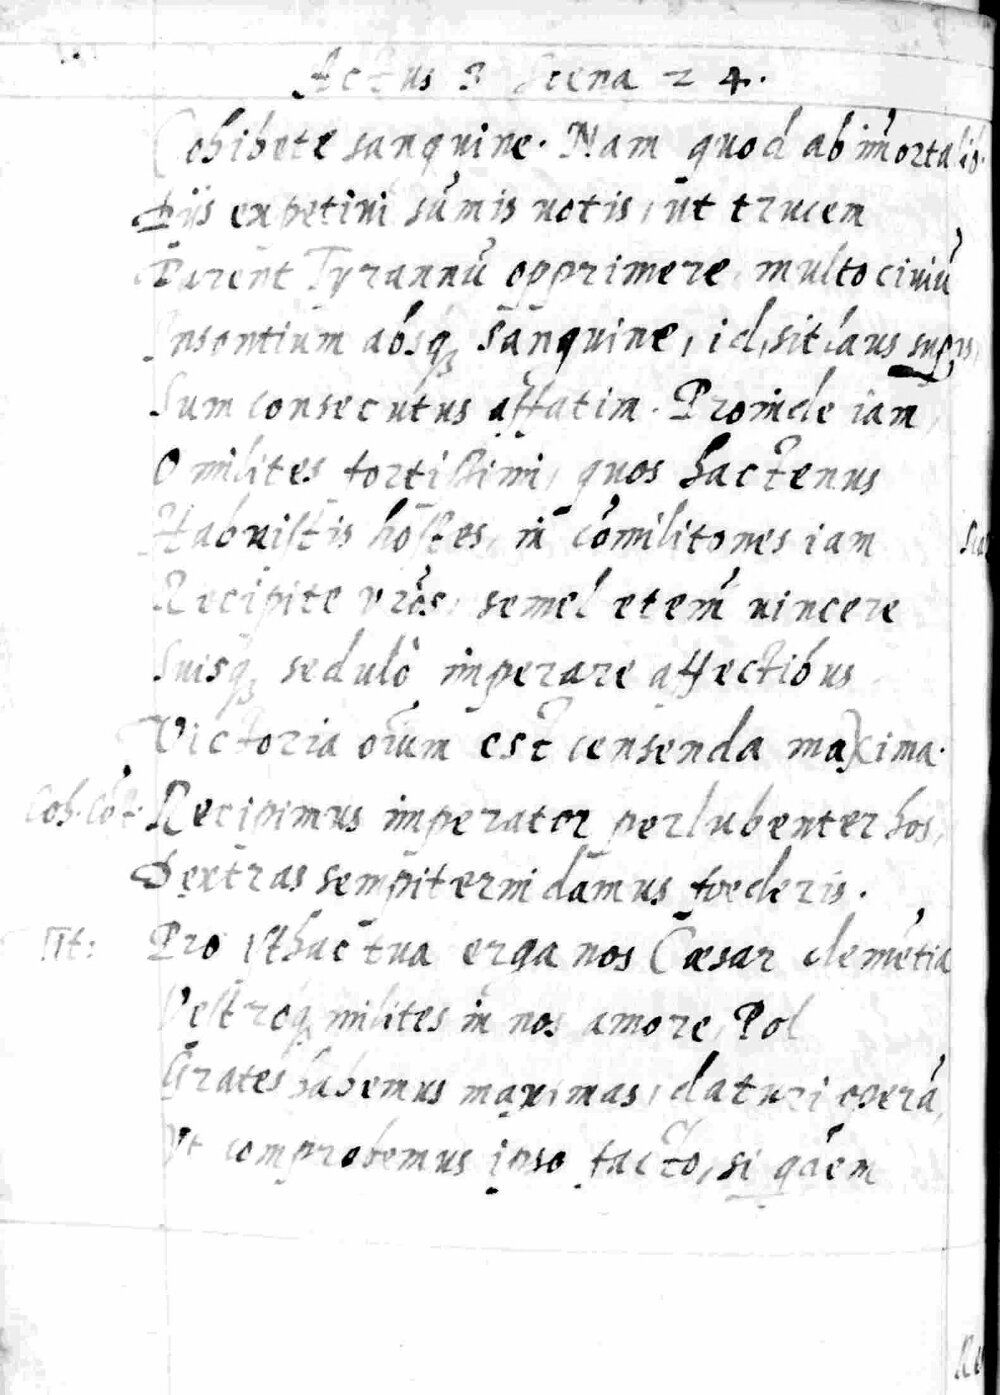 Actus 3 Scena 2 4.
Cohibete sanguine. Nam quod ab im̄ortalib.
Diis expetivi sūmis votis, ut trucem
Darent Tyrannū opprimere, multo civiū
Insontium absq; sanguine, id, sit laus supis,
Sum consecutus affatim. Proinde iam,
O milites fortissimi, quos hactenus
Habuistis hostes, in cōmilitones iam
Recipite vrōs, semel etem̄ vincere
Suisq; sedulò imperare affectibus
Victoria oīum est censenda maxima.
Coh. Cōst. Recipimus imperator perlubenter hos,
Dextras sempiterni damus foederis.
Tit: Pro isthac tua erga nos Cæsar clemētia
Vestroq; milites in nos amore, Pol
Grates habemus maximas, daturi operā,
Vt comprobemus ipso facto, si q̄dem